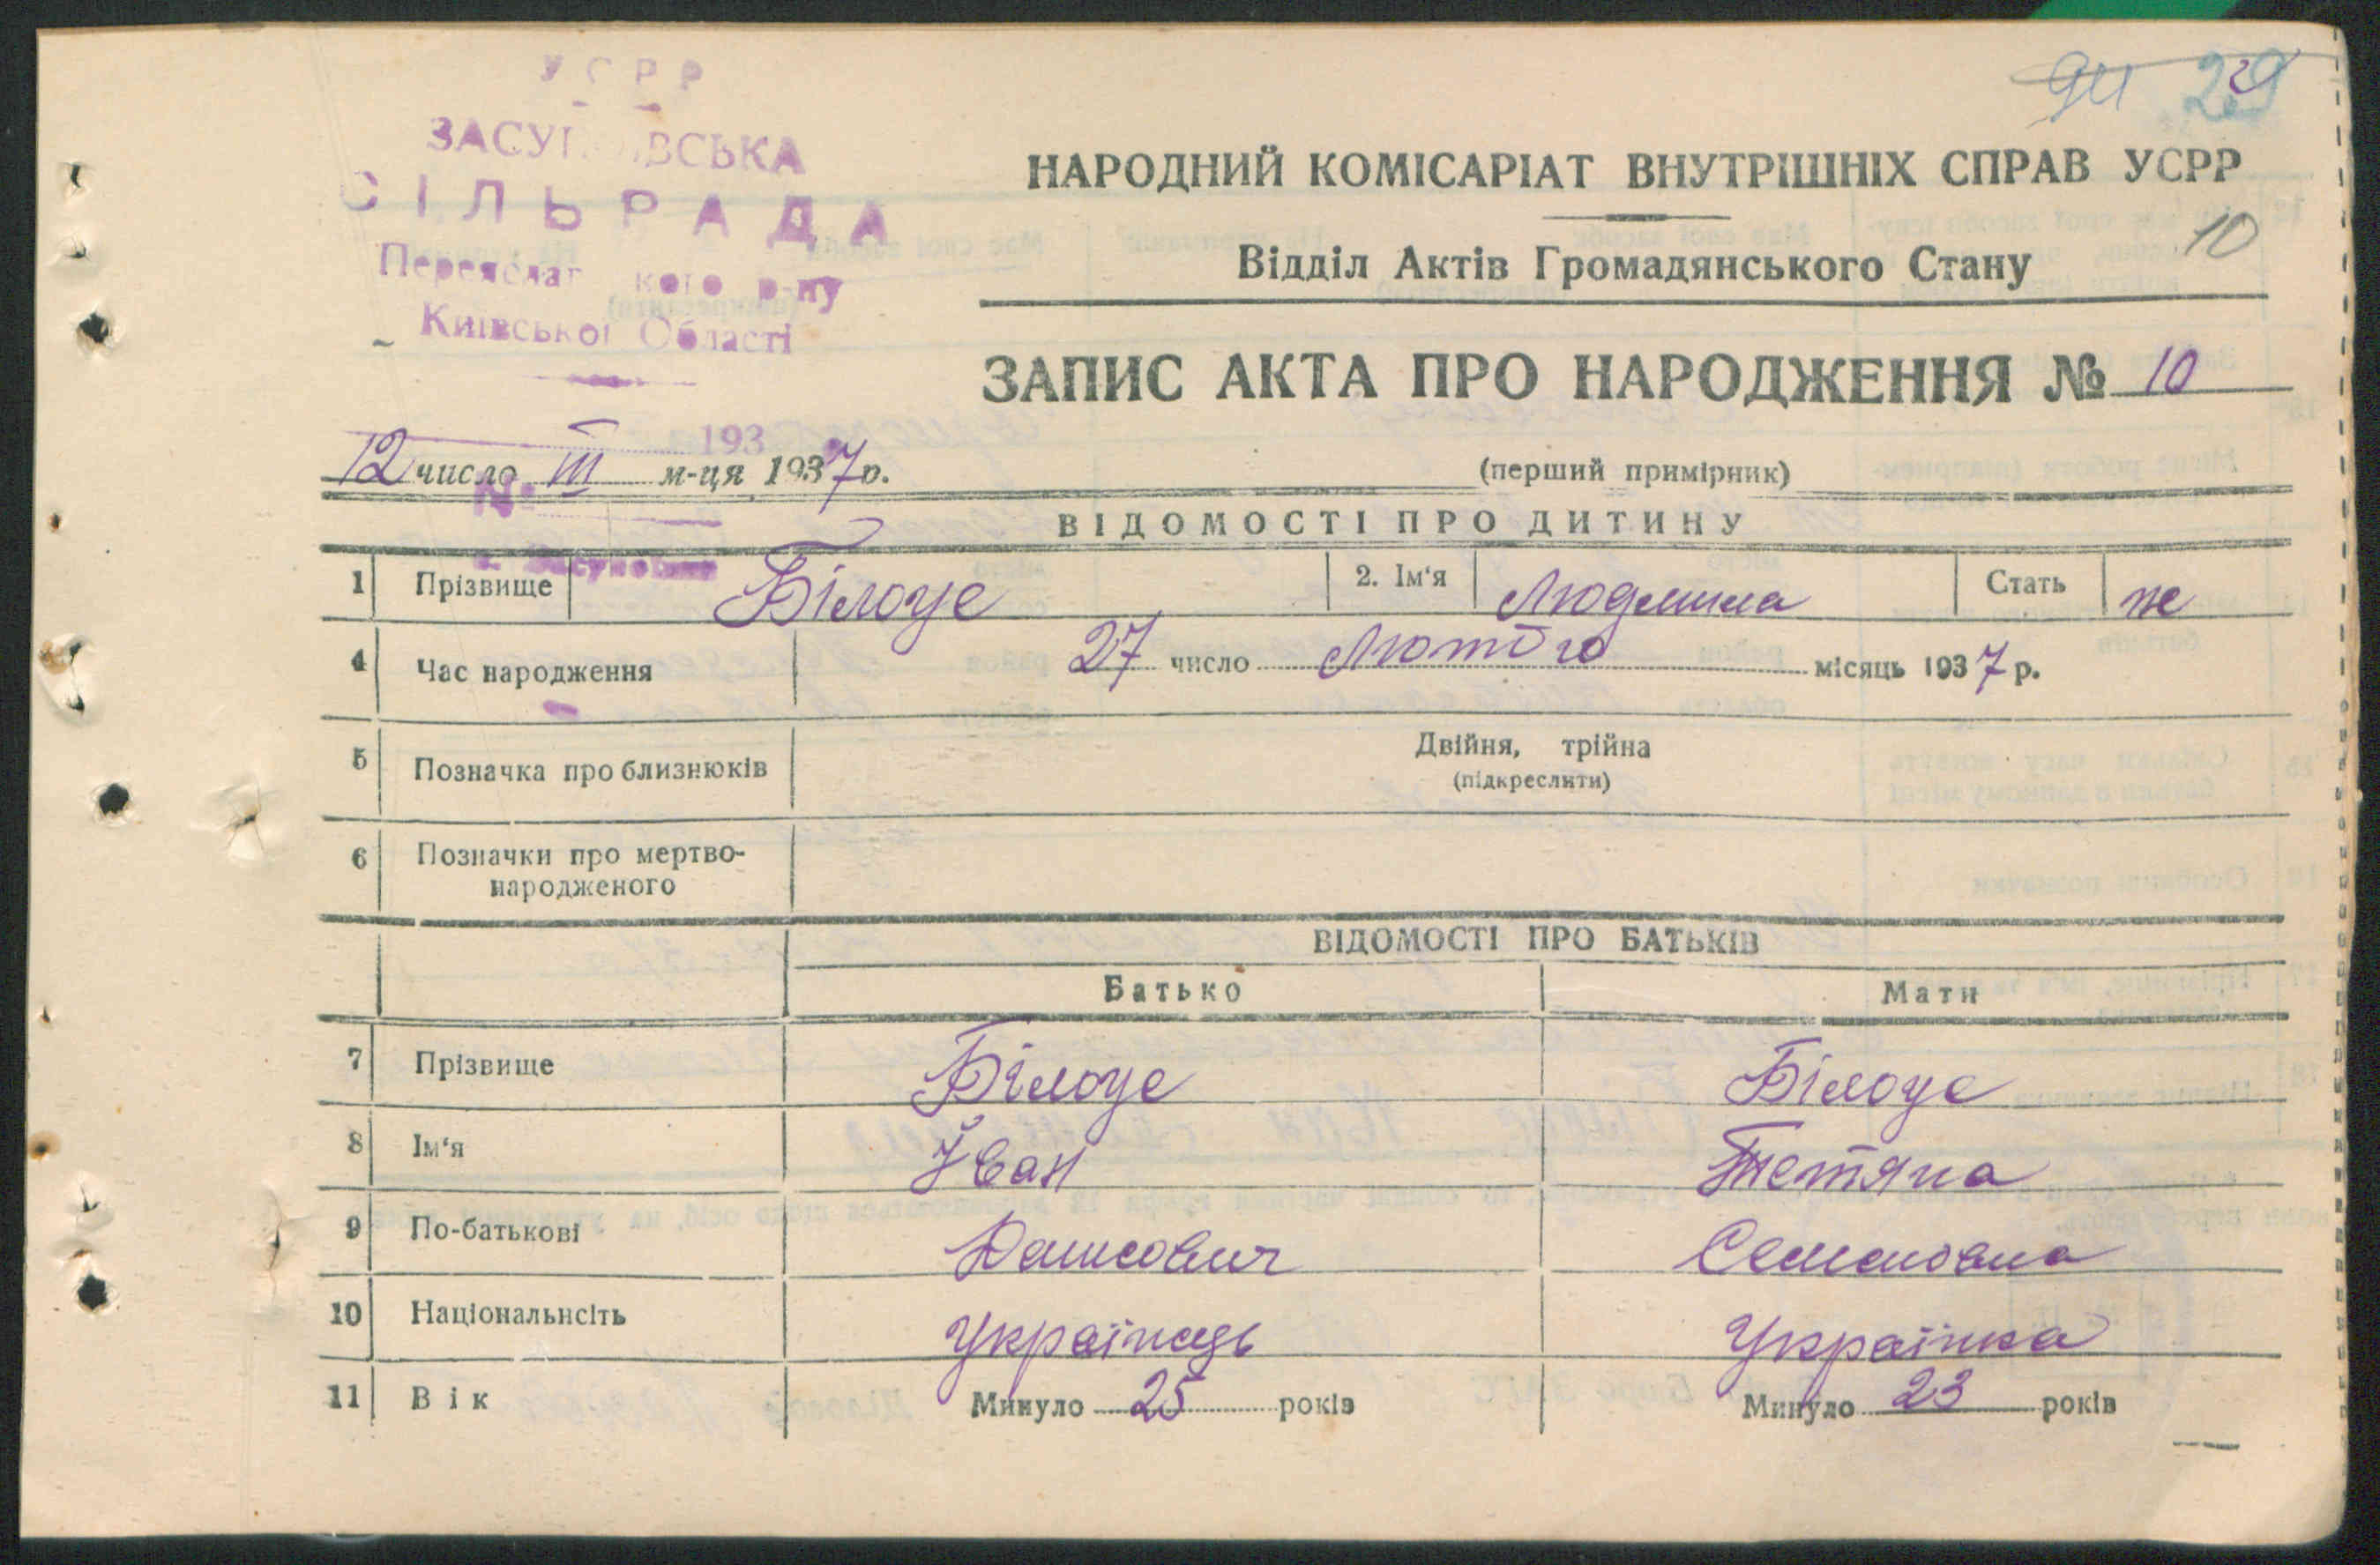 УСРР
ЗАСУПОЇВСЬКА
СІЛЬРАДА
Переяслав кого р-ну
Київської Області
94 29
НАРОДНИЙ КОМІСАРІАТ ВНУТРІШНІХ СПРАВ УСРР
Відділ Актів Громадянського Стану
10
ЗАПИС АКТА ПРО НАРОДЖЕННЯ № 10
193
12 число III м-ця 1937 р.
(перший примірник)
№
ВІДОМОСТІ ПРО ДИТИНУ
1 Прізвище Білоус 2. Ім‘я Людмила Стать ж
4 Час народження 27 число Лютого місяць 1937 р.
5 Позначка про близнюків Двійня, трійна
(підкреслити)
6 Позначки про мертво-
народженого
ВІДОМОСТІ ПРО БАТЬКІВ
Батько Мати
7 Прізвище Білоус Білоус
8 Ім‘я Іван Тетяна
9 По-батькові Денисович Семеновна
10 Національнсіть Українець Українка
11 Вік Минуло 25 років Минуло 23 років